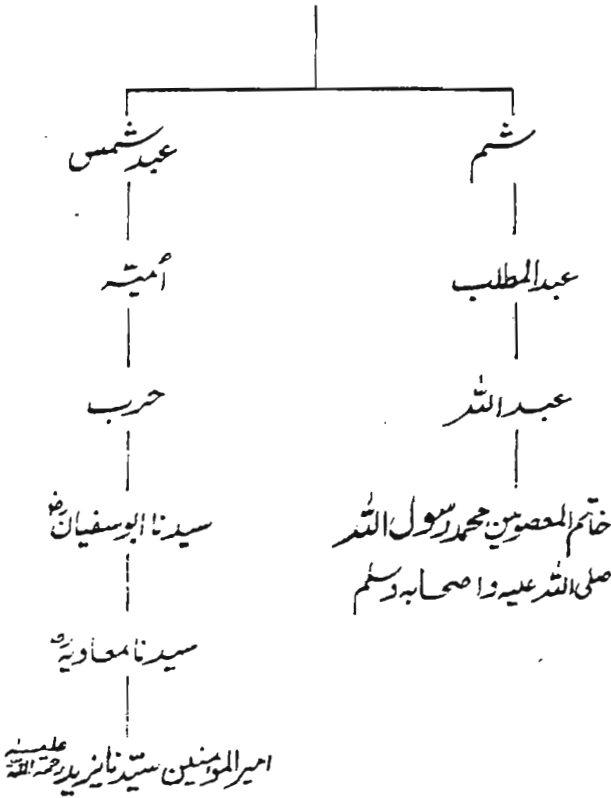 شم
عبدالمطلب
عبداللہ
خاتم المعصومین محمد رسول اللہ
صلی اللہ علیہ واصحابہ وسلم
عبدشمس
اُمیّہ
حرب
سیدنا ابوسفیانؓ
سیدنا معاویہؓ
امیرالمؤمنین سیّدنا یزید رحمۃ اللہ علیہ